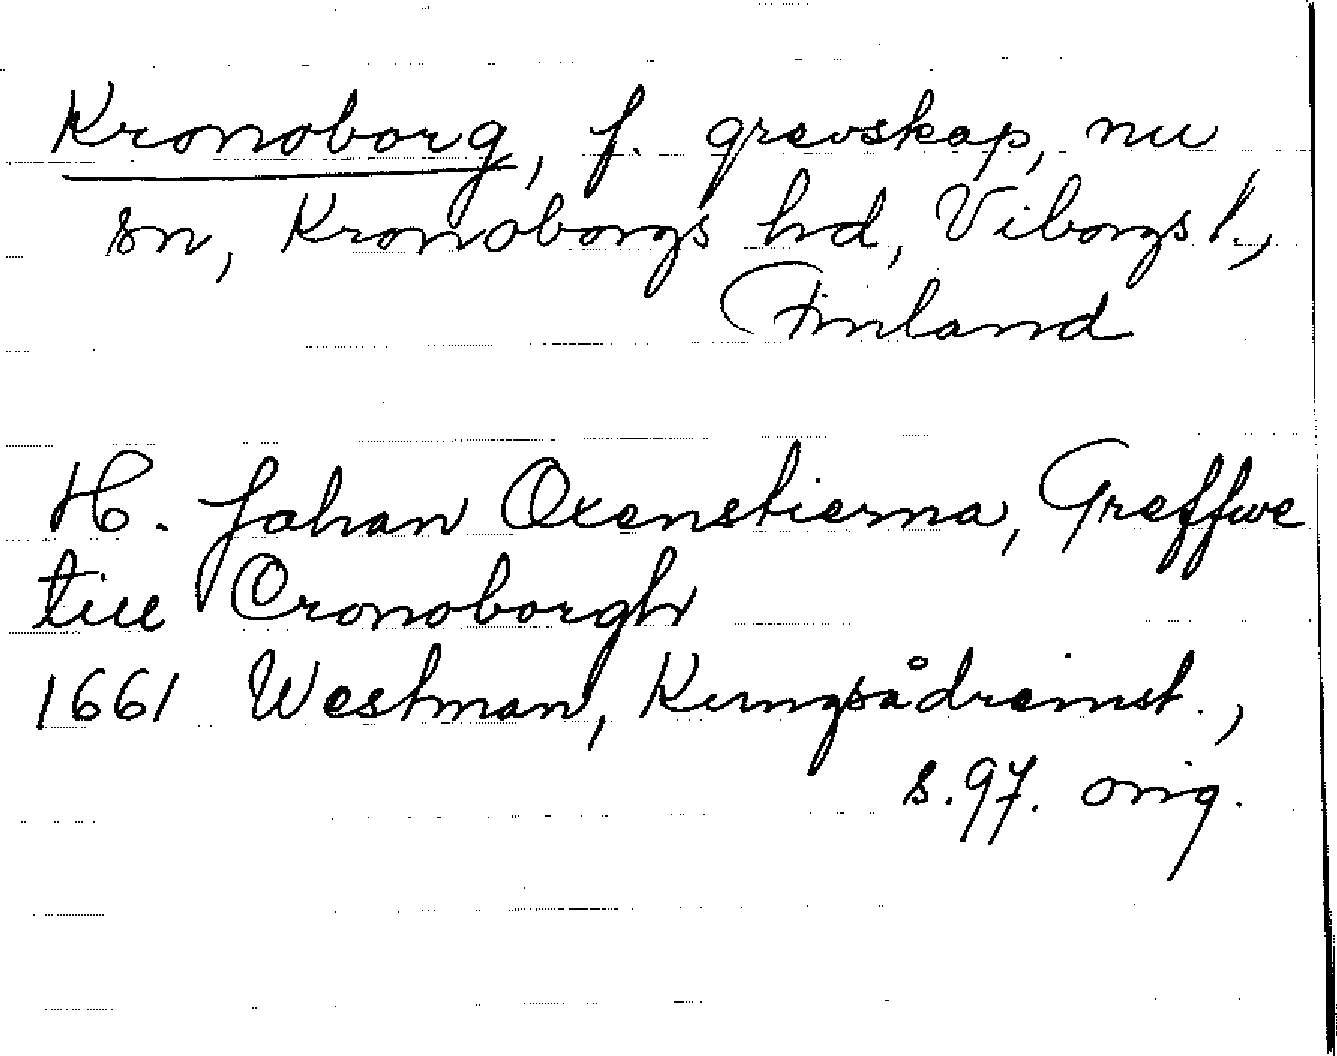 Kronoborg, f. grevskap, nu
sn, Kronoborgs hd, Viborgs l.,
Finland
H. Johan Oxenstierna, Greffwe
till Cronoborgh
1661 Westman, Kungsådrainst.,
s. 97. orig.